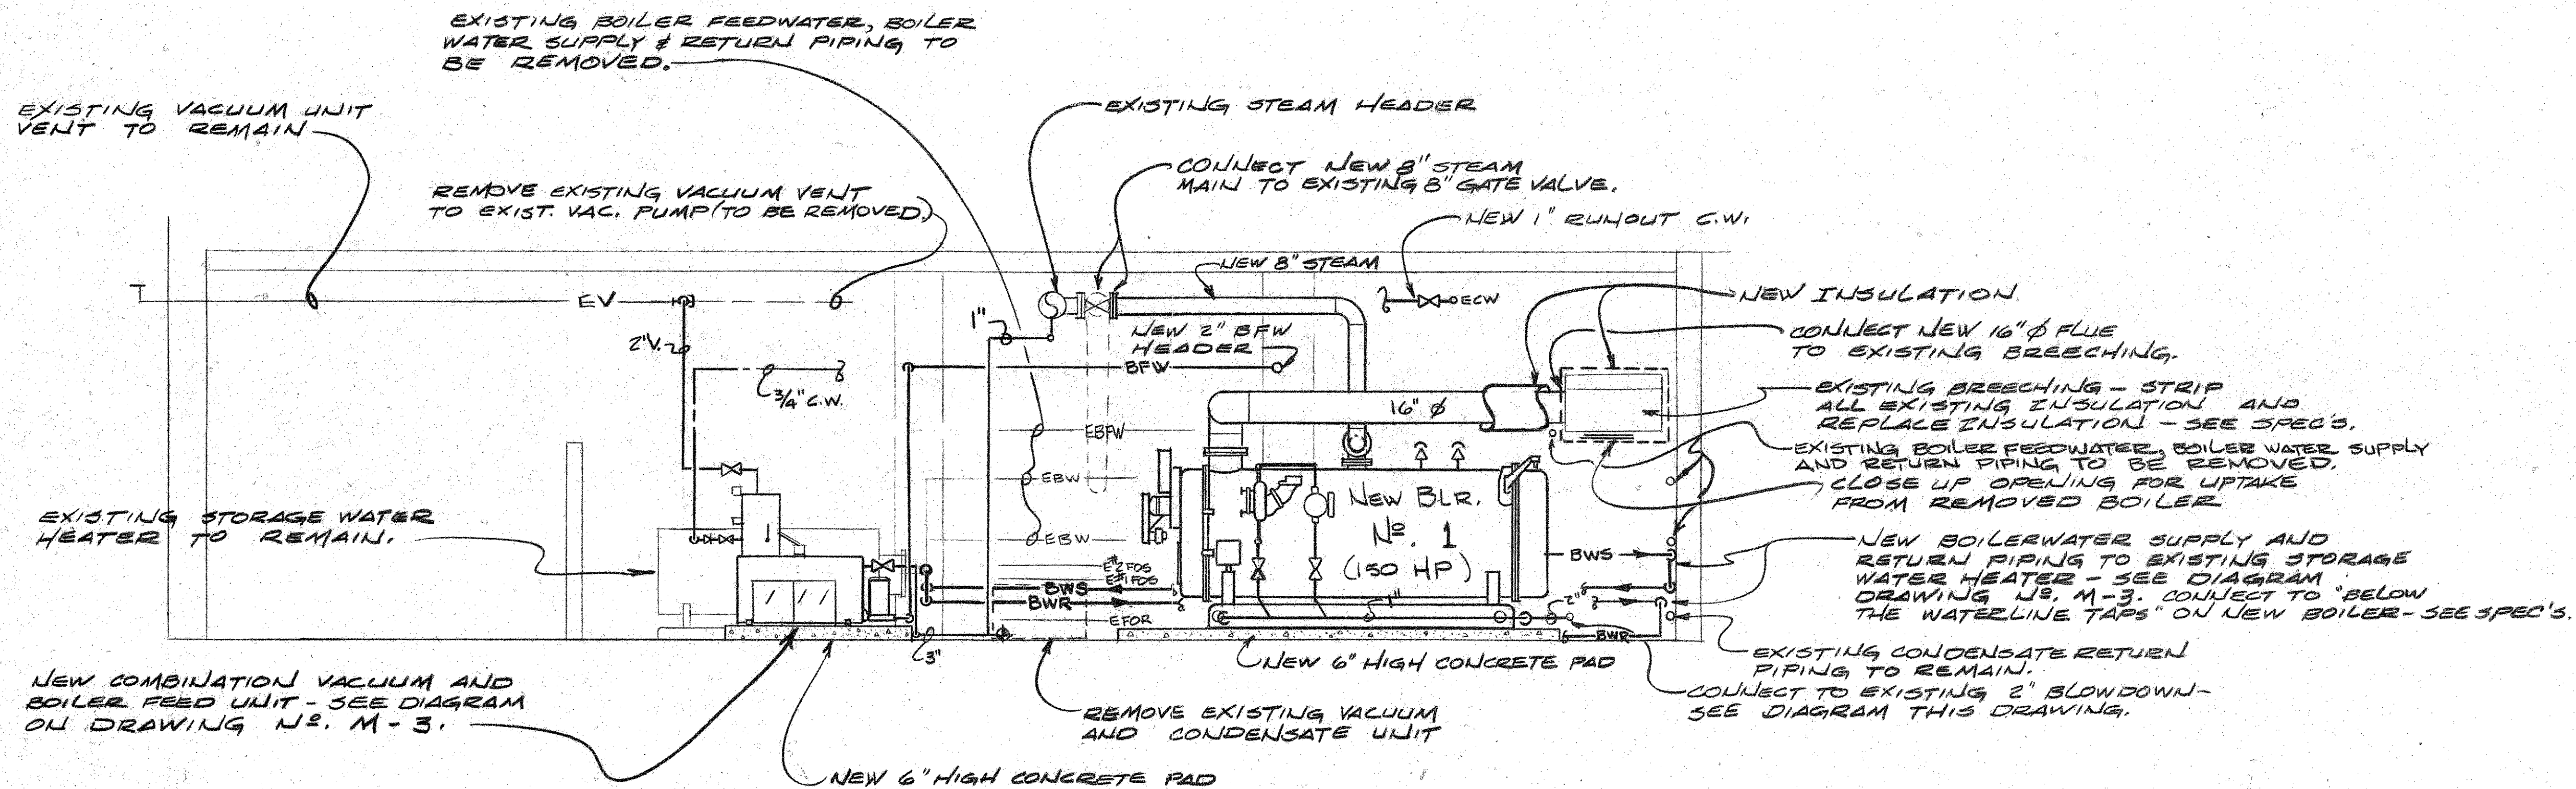 EXISTING BOILER FEEDWATER, BOILER
WATER SUPPLY & RETURN PIPING TO
BE REMOVED.
EXISTING VACUUM UNIT
VENT TO REMAIN
EXISTING STEAM HEADER
REMOVE EXISTING VACUUM VENT
TO EXIST. VAC. PUMP (TO BE REMOVED.)
CONNECT NEW 8" STEAM
MAIN TO EXISTING 8" GATE VALVE.
NEW 1" RUNOUT C.W.
NEW 8" STEAM
EV
ECW
1"
NEW 2" BFW
HEADER
BFW
2"V.
3/4" C.W.
NEW INSULATION
CONNECT NEW 16" Ø FLUE
TO EXISTING BREECHING.
16" Ø
EXISTING BREECHING - STRIP
ALL EXISTING INSULATION AND
REPLACE INSULATION - SEE SPEC'S.
EBFW
EXISTING BOILER FEEDWATER, BOILER WATER SUPPLY
AND RETURN PIPING TO BE REMOVED.
CLOSE UP OPENING FOR UPTAKE
FROM REMOVED BOILER
EBW
EBW
NEW BLR.
Nº. 1
(150 HP)
EXISTING STORAGE WATER
HEATER TO REMAIN.
#2 FOS
E#1FOS
BWS
BWR
EFOR
BWS
1"
2"
BWR
3"
NEW BOILERWATER SUPPLY AND
RETURN PIPING TO EXISTING STORAGE
WATER HEATER - SEE DIAGRAM
DRAWING Nº. M-3. CONNECT TO "BELOW
THE WATERLINE TAPS" ON NEW BOILER - SEE SPEC'S.
EXISTING CONDENSATE RETURN
PIPING TO REMAIN.
CONNECT TO EXISTING 2" BLOWDOWN-
SEE DIAGRAM THIS DRAWING.
NEW 6" HIGH CONCRETE PAD
NEW COMBINATION VACUUM AND
BOILER FEED UNIT - SEE DIAGRAM
ON DRAWING Nº. M-3.
REMOVE EXISTING VACUUM
AND CONDENSATE UNIT
NEW 6" HIGH CONCRETE PAD